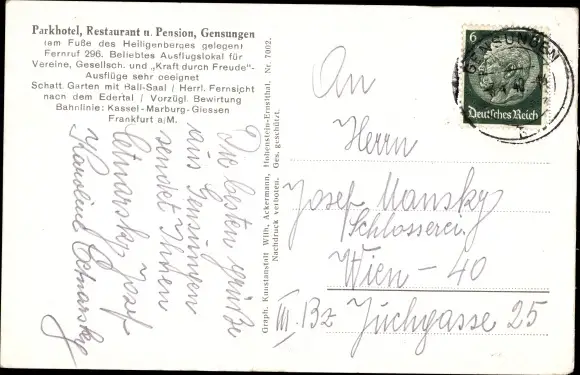 Parkhotel, Restaurant u. Pension, Gensungen
(am Fuße des Heiligenberges gelegen)
Fernruf 296. Beliebtes Ausflugslokal für
Vereine, Gesellsch. und „Kraft durch Freude"-
Ausflüge sehr geeignet
Schatt. Garten mit Ball-Saal / Herrl. Fernsicht
nach dem Edertal / Vorzügl. Bewirtung
Bahnlinie: Kassel-Marburg-Giessen
Frankfurt a/M.
Die besten Grüße
aus Gensungen
sendet Ihnen
Josef
Karoline
Graph. Kunstanstalt Wilh. Ackermann, Hohenstein-Ernstthal. Nr. 7002.
Nachdruck verboten. Ges. geschützt.
6
Deutsches Reich
GENSUNGEN
An
Herrn
Josef Mansky
Schlosserei
Wien - 40
III. Bz Juchgasse 25